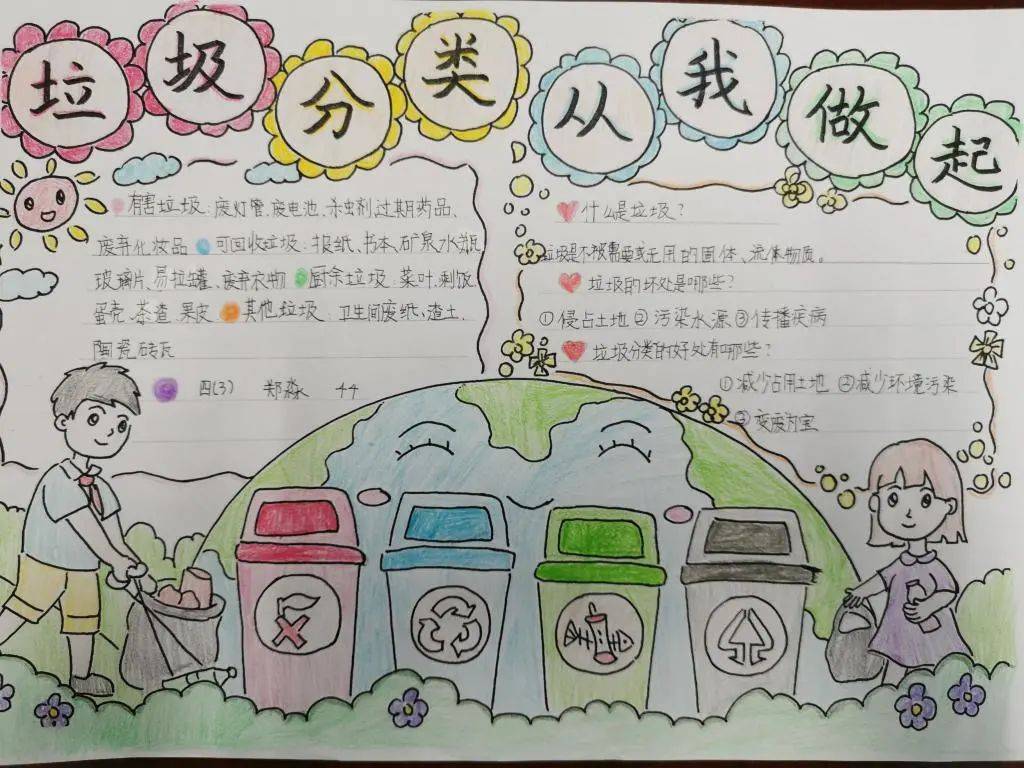 垃圾分类从我做起
有害垃圾:废灯管、废电池、杀虫剂、过期药品、
废弃化妆品 可回收垃圾:报纸、书本、矿泉水瓶
玻璃片、易拉罐、废弃衣物 厨余垃圾:菜叶、剩饭
蛋壳、茶渣、果皮 其他垃圾:卫生间废纸、渣土、
陶瓷砖瓦
四(3) 郑淼 44
什么是垃圾?
垃圾是不被需要或无用的固体、流体物质。
垃圾的坏处是哪些?
①侵占土地②污染水源③传播疾病
垃圾分类的好处有哪些?
①减少占用土地 ②减少环境污染
③变废为宝